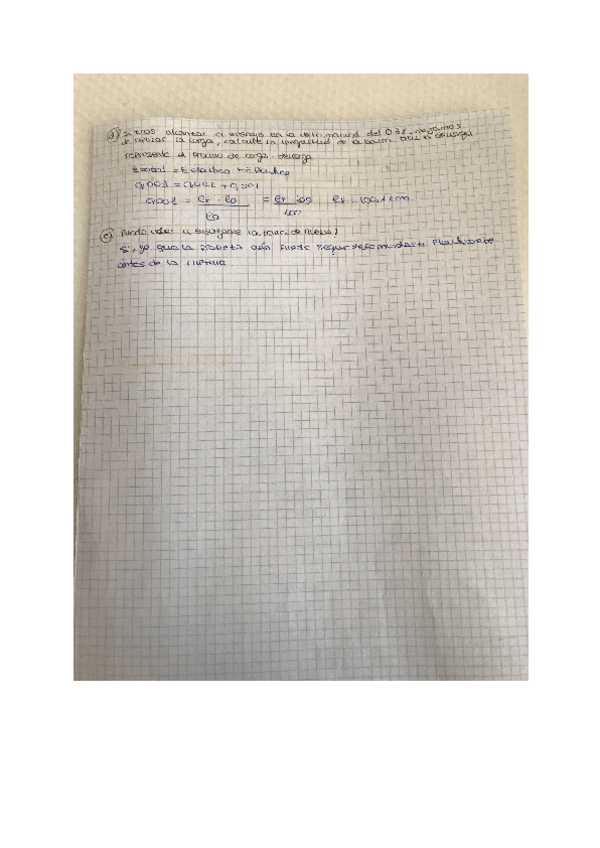 d) Si tras alcanzar el ensayo en la deformación del 0.3%, dejamos
de aplicar la carga, calcule la longitud de la barra tras el descarga.
represente el proceso de carga-descarga
Etotal = E elástica + E plástica
0,001
= lf - lo / lo = lf - 100 / 100 lf = 100,1 cm
e) Puede volver a ensayarse la barra de nuevo?
Sí, ya que la probeta aún puede seguir deformándose plásticamente
antes de la rotura